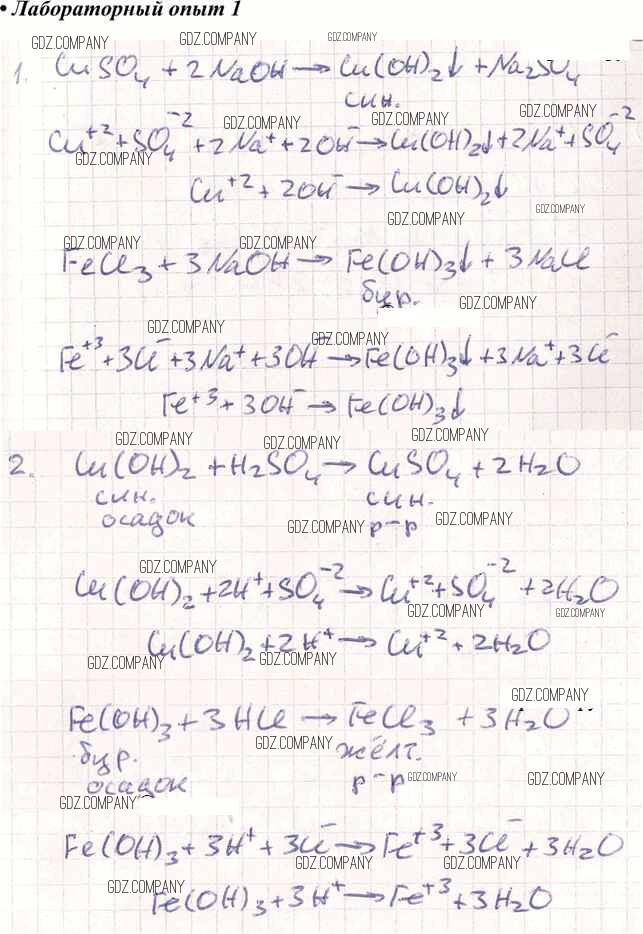 • Лабораторный опыт 1
GDZ.COMPANY GDZ.COMPANY GDZ.COMPANY
1. CuSO4 + 2NaOH → Cu(OH)2↓ + Na2SO4
син.
GDZ.COMPANY GDZ.COMPANY
Cu+2 + SO4-2 + 2Na+ + 2OH- → Cu(OH)2↓ + 2Na+ + SO4-2
GDZ.COMPANY GDZ.COMPANY
Cu+2 + 2OH- → Cu(OH)2↓
GDZ.COMPANY GDZ.COMPANY
GDZ.COMPANY GDZ.COMPANY
FeCl3 + 3NaOH → Fe(OH)3↓ + 3NaCl
бур.
GDZ.COMPANY
GDZ.COMPANY GDZ.COMPANY
Fe+3 + 3Cl- + 3Na+ + 3OH- → Fe(OH)3↓ + 3Na+ + 3Cl-
GDZ.COMPANY GDZ.COMPANY
Fe+3 + 3OH- → Fe(OH)3↓
GDZ.COMPANY GDZ.COMPANY GDZ.COMPANY
2. Cu(OH)2 + H2SO4 → CuSO4 + 2H2O
син. син.
осадок р-р
GDZ.COMPANY GDZ.COMPANY
GDZ.COMPANY
Cu(OH)2 + 2H+ + SO4-2 → Cu+2 + SO4-2 + 2H2O
GDZ.COMPANY GDZ.COMPANY
Cu(OH)2 + 2H+ → Cu+2 + 2H2O
GDZ.COMPANY GDZ.COMPANY
GDZ.COMPANY
Fe(OH)3 + 3HCl → FeCl3 + 3H2O
GDZ.COMPANY
бур. жёлт.
осадок р-р
GDZ.COMPANY GDZ.COMPANY
GDZ.COMPANY
Fe(OH)3 + 3H+ + 3Cl- → Fe+3 + 3Cl- + 3H2O
GDZ.COMPANY GDZ.COMPANY
GDZ.COMPANY
Fe(OH)3 + 3H+ → Fe+3 + 3H2O